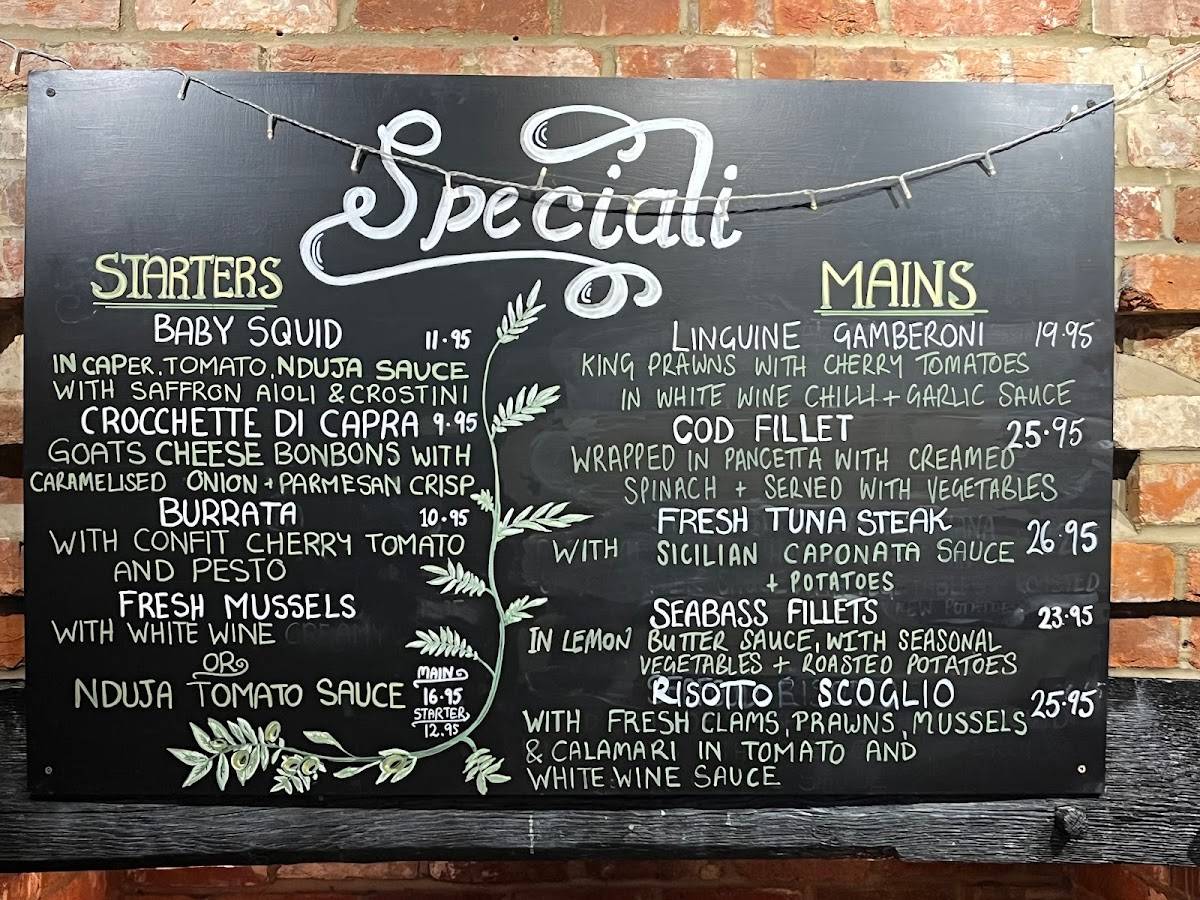 Speciali
STARTERS
BABY SQUID 11.95
IN CAPER, TOMATO, NDUJA SAUCE
WITH SAFFRON AIOLI & CROSTINI
CROCCHETTE DI CAPRA 9.95
GOATS CHEESE BONBONS WITH
CARAMELISED ONION + PARMESAN CRISP
BURRATA 10.95
WITH CONFIT CHERRY TOMATO
AND PESTO
FRESH MUSSELS
WITH WHITE WINE CREAMY
OR
NDUJA TOMATO SAUCE
MAIN
16.95
STARTER
12.95
MAINS
LINGUINE GAMBERONI 19.95
KING PRAWNS WITH CHERRY TOMATOES
IN WHITE WINE CHILLI + GARLIC SAUCE
COD FILLET 25.95
WRAPPED IN PANCETTA WITH CREAMED
SPINACH + SERVED WITH VEGETABLES
FRESH TUNA STEAK 26.95
WITH SICILIAN CAPONATA SAUCE
+ POTATOES
SEABASS FILLETS 23.95
IN LEMON BUTTER SAUCE, WITH SEASONAL
VEGETABLES + ROASTED POTATOES
RISOTTO SCOGLIO 25.95
WITH FRESH CLAMS, PRAWNS, MUSSELS
& CALAMARI IN TOMATO AND
WHITE WINE SAUCE